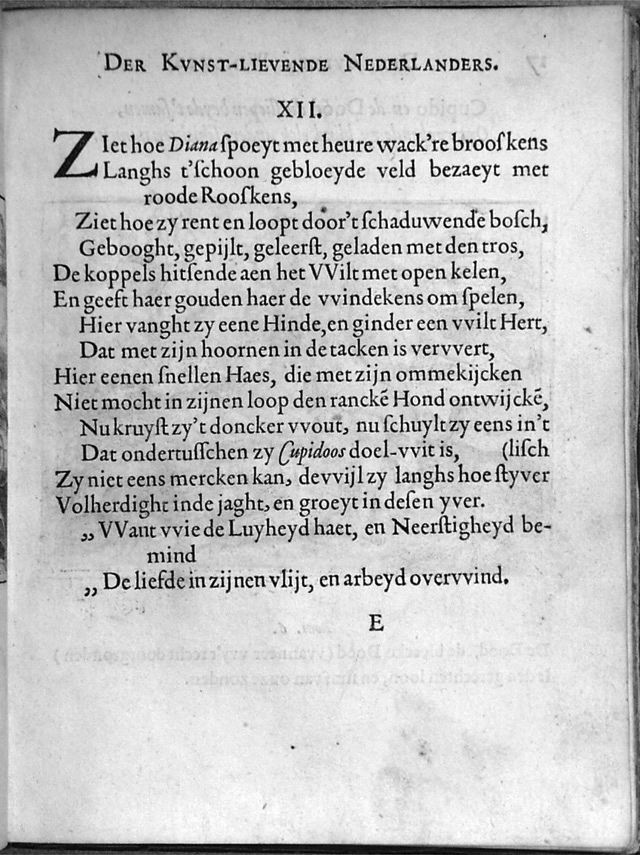 DER KVNST-LIEVENDE NEDERLANDERS.
XII.
ZIet hoe Diana ſpoeyt met heure wack're brooſkens
Langhs t'ſchoon gebloeyde veld bezaeyt met
roode Rooſkens,
Ziet hoe zy rent en loopt door't ſchaduwende boſch,
Gebooght, gepijlt, geleerſt, geladen met den tros,
De koppels hitſende aen het VVilt met open kelen,
En geeft haer gouden haer de vvindekens om ſpelen,
Hier vanght zy eene Hinde, en ginder een vvilt Hert,
Dat met zijn hoornen in de tacken is vervvert,
Hier eenen ſnellen Haes, die met zijn ommekijcken
Niet mocht in zijnen loop den ranckē Hond ontwijckē,
Nu kruyſt zy't doncker vvout, nu ſchuylt zy eens in't
Dat ondertuſſchen zy Cupidoos doel-vvit is, (liſch
Zy niet eens mercken kan, devvijl zy langhs hoe ſtyver
Volherdight in de jaght, en groeyt in deſen yver.
„ VVant vvie de Luyheyd haet, en Neerſtigheyd be-
mind
„ De liefde in zijnen vlijt, en arbeyd overvvind.
E